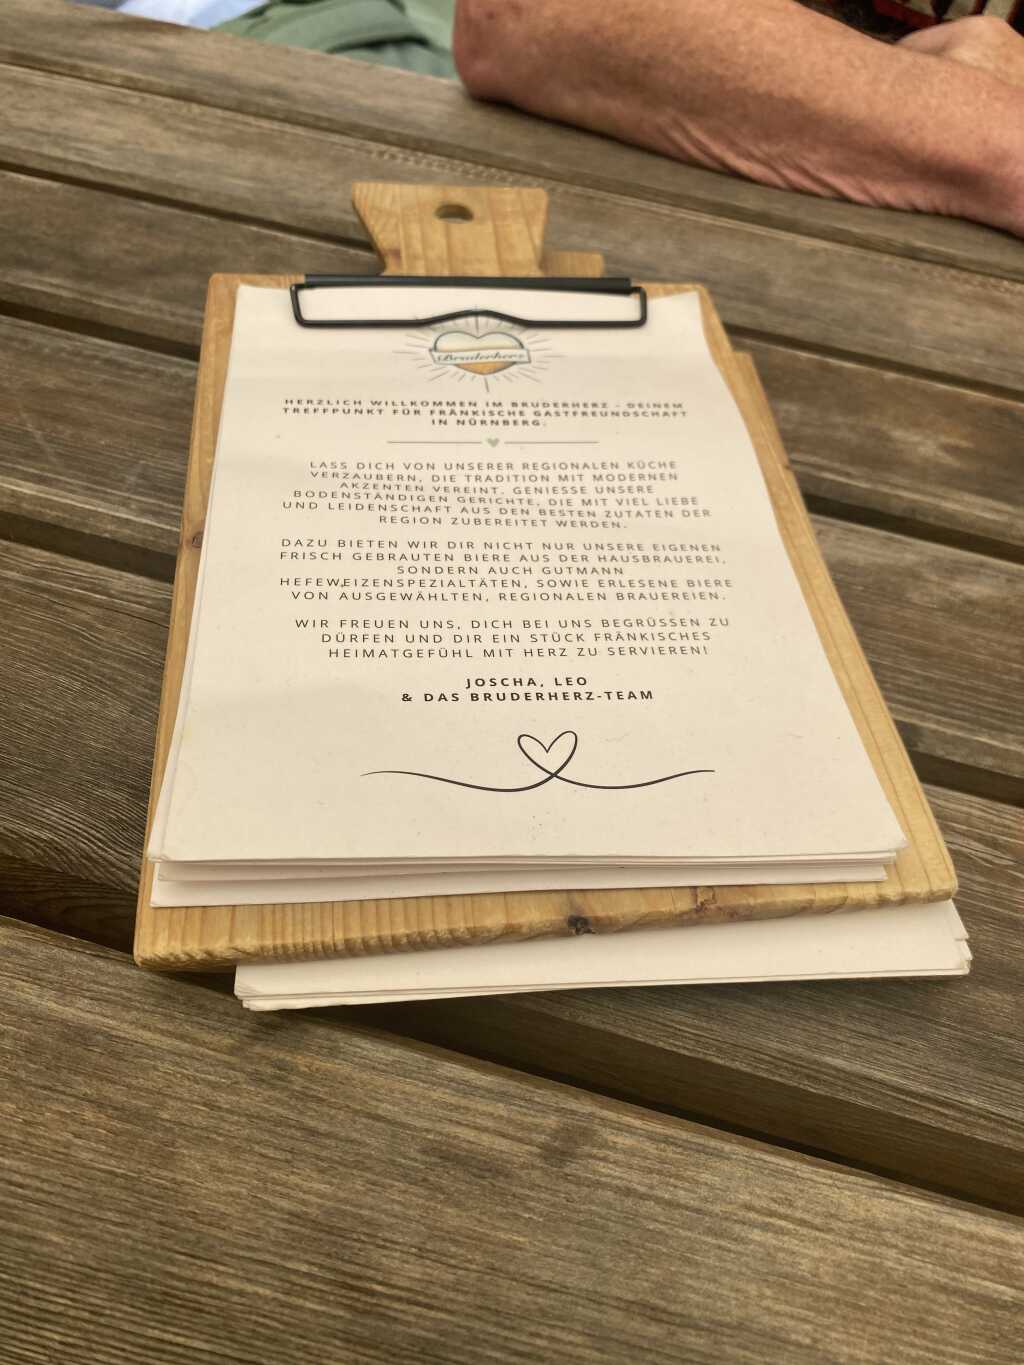 Bruderherz
HERZLICH WILLKOMMEN IM BRUDERHERZ - DEINEM
TREFFPUNKT FÜR FRÄNKISCHE GASTFREUNDSCHAFT
IN NÜRNBERG.
LASS DICH VON UNSERER REGIONALEN KÜCHE
VERZAUBERN, DIE TRADITION MIT MODERNEN
AKZENTEN VEREINT. GENIESSE UNSERE
BODENSTÄNDIGEN GERICHTE, DIE MIT VIEL LIEBE
UND LEIDENSCHAFT AUS DEN BESTEN ZUTATEN DER
REGION ZUBEREITET WERDEN.
DAZU BIETEN WIR DIR NICHT NUR UNSERE EIGENEN
FRISCH GEBRAUTEN BIERE AUS DER HAUSBRAUEREI,
SONDERN AUCH GUTMANN
HEFEWEIZENSPEZIALTÄTEN, SOWIE ERLESENE BIERE
VON AUSGEWÄHLTEN, REGIONALEN BRAUEREIEN.
WIR FREUEN UNS, DICH BEI UNS BEGRÜSSEN ZU
DÜRFEN UND DIR EIN STÜCK FRÄNKISCHES
HEIMATGEFÜHL MIT HERZ ZU SERVIEREN!
JOSCHA, LEO
& DAS BRUDERHERZ-TEAM